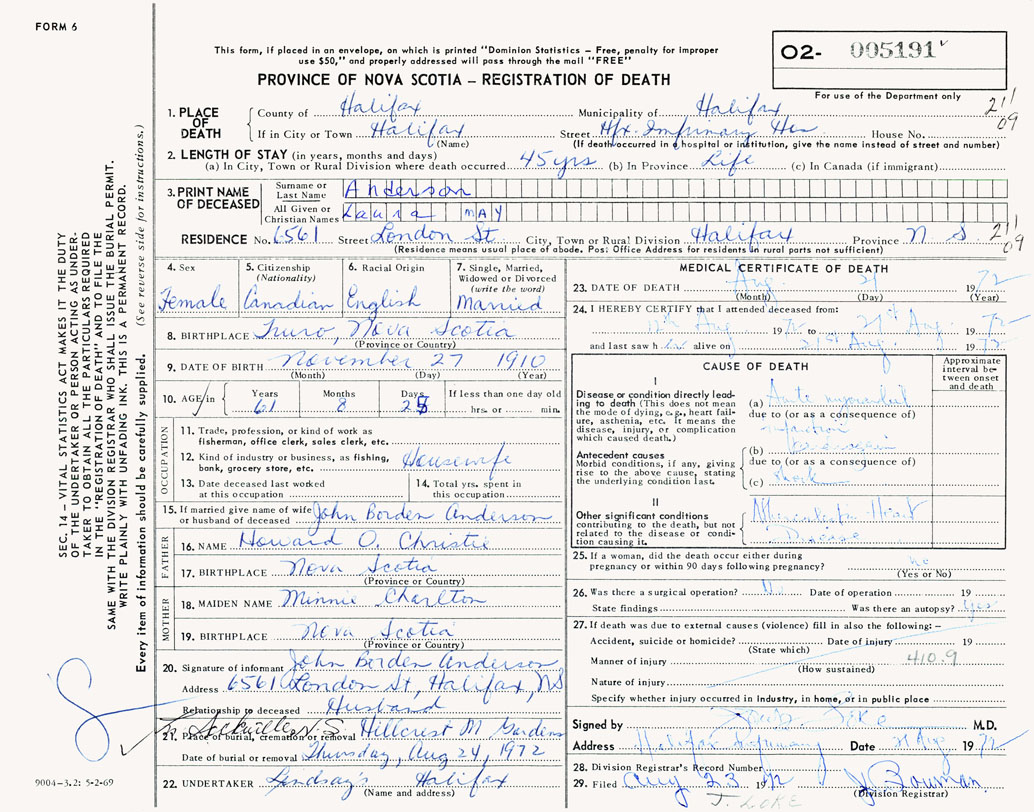 FORM 6
This form, if placed in an envelope, on which is printed "Dominion Statistics – Free, penalty for improper
use $50," and properly addressed will pass through the mail "FREE"
PROVINCE OF NOVA SCOTIA – REGISTRATION OF DEATH
O2- 005191
For use of the Department only
211
09
1. PLACE OF DEATH
County of Halifax Municipality of Halifax
If in City or Town Halifax Street Hfx. Infirmary House No.
(Name) (If death occurred in a hospital or institution, give the name instead of street and number)
2. LENGTH OF STAY (in years, months and days)
(a) In City, Town or Rural Division where death occurred 45 yrs (b) In Province Life (c) In Canada (if immigrant)
3. PRINT NAME OF DECEASED
Surname or Last Name Anderson
All Given or Christian Names Laura MAY
RESIDENCE No. 6561 Street London St City, Town or Rural Division Halifax Province N S 211
09
(Residence means usual place of abode. Post Office Address for residents in rural parts not sufficient)
4. Sex Female
5. Citizenship (Nationality) Canadian
6. Racial Origin English
7. Single, Married, Widowed or Divorced (write the word) Married
8. BIRTHPLACE Truro, Nova Scotia
(Province or Country)
9. DATE OF BIRTH November 27 1910
(Month) (Day) (Year)
10. AGE in Years 61 Months 8 Days 25 If less than one day old hrs. or min.
OCCUPATION
11. Trade, profession, or kind of work as
fisherman, office clerk, sales clerk, etc.
12. Kind of industry or business, as fishing,
bank, grocery store, etc. Housewife
13. Date deceased last worked
at this occupation
14. Total yrs. spent in
this occupation
15. If married give name of wife
or husband of deceased John Borden Anderson
FATHER
16. NAME Howard O. Christie
17. BIRTHPLACE Nova Scotia
(Province or Country)
MOTHER
18. MAIDEN NAME Minnie Charlton
19. BIRTHPLACE Nova Scotia
(Province or Country)
20. Signature of informant John Borden Anderson
Address 6561 London St, Halifax, NS
Relationship to deceased Husband
Sackville N.S.
21. Place of burial, cremation or removal Hillcrest M Gardens
Date of burial or removal Thursday, Aug 24, 1972
22. UNDERTAKER Lindsay's Halifax
(Name and address)
MEDICAL CERTIFICATE OF DEATH
23. DATE OF DEATH Aug 21 1972
(Month) (Day) (Year)
24. I HEREBY CERTIFY that I attended deceased from:
12th Aug 1972 to 21st Aug 1972
and last saw her alive on 21st Aug 1972
CAUSE OF DEATH
Approximate interval between onset and death
I
Disease or condition directly leading to death (This does not mean the mode of dying, e.g., heart failure, asthenia, etc. it means the disease, injury, or complication which caused death.)
(a) Acute myocardial
due to (or as a consequence of)
infarction
Antecedent causes
Morbid conditions, if any, giving rise to the above cause, stating the underlying condition last.
(b)
due to (or as a consequence of)
(c) shock
II
Other significant conditions
contributing to the death, but not related to the disease or condition causing it.
Heart
Disease
25. If a woman, did the death occur either during
pregnancy or within 90 days following pregnancy? no
(Yes or No)
26. Was there a surgical operation? No Date of operation 19
State findings Was there an autopsy? Yes
27. If death was due to external causes (violence) fill in also the following:–
Accident, suicide or homicide? Date of injury 19
(State which)
Manner of injury 410.9
(How sustained)
Nature of injury
Specify whether injury occurred in Industry, in home, or in public place
Signed by M.D.
Address Halifax Infirmary Date 21 Aug 1972
28. Division Registrar's Record Number
29. Filed Aug 23 1972 J Bowman
(Division Registrar)
J. LOKE
SEC. 14 – VITAL STATISTICS ACT MAKES IT THE DUTY
OF THE UNDERTAKER OR PERSON ACTING AS UNDER-
TAKER TO OBTAIN ALL THE PARTICULARS REQUIRED
IN THE "REGISTRATION OF DEATH" AND TO FILE THE
SAME WITH THE DIVISION REGISTRAR WHO SHALL ISSUE THE BURIAL PERMIT.
WRITE PLAINLY WITH UNFADING INK. THIS IS A PERMANENT RECORD.
Every item of information should be carefully supplied. (See reverse side for instructions.)
9004-3.2: 5-2-69